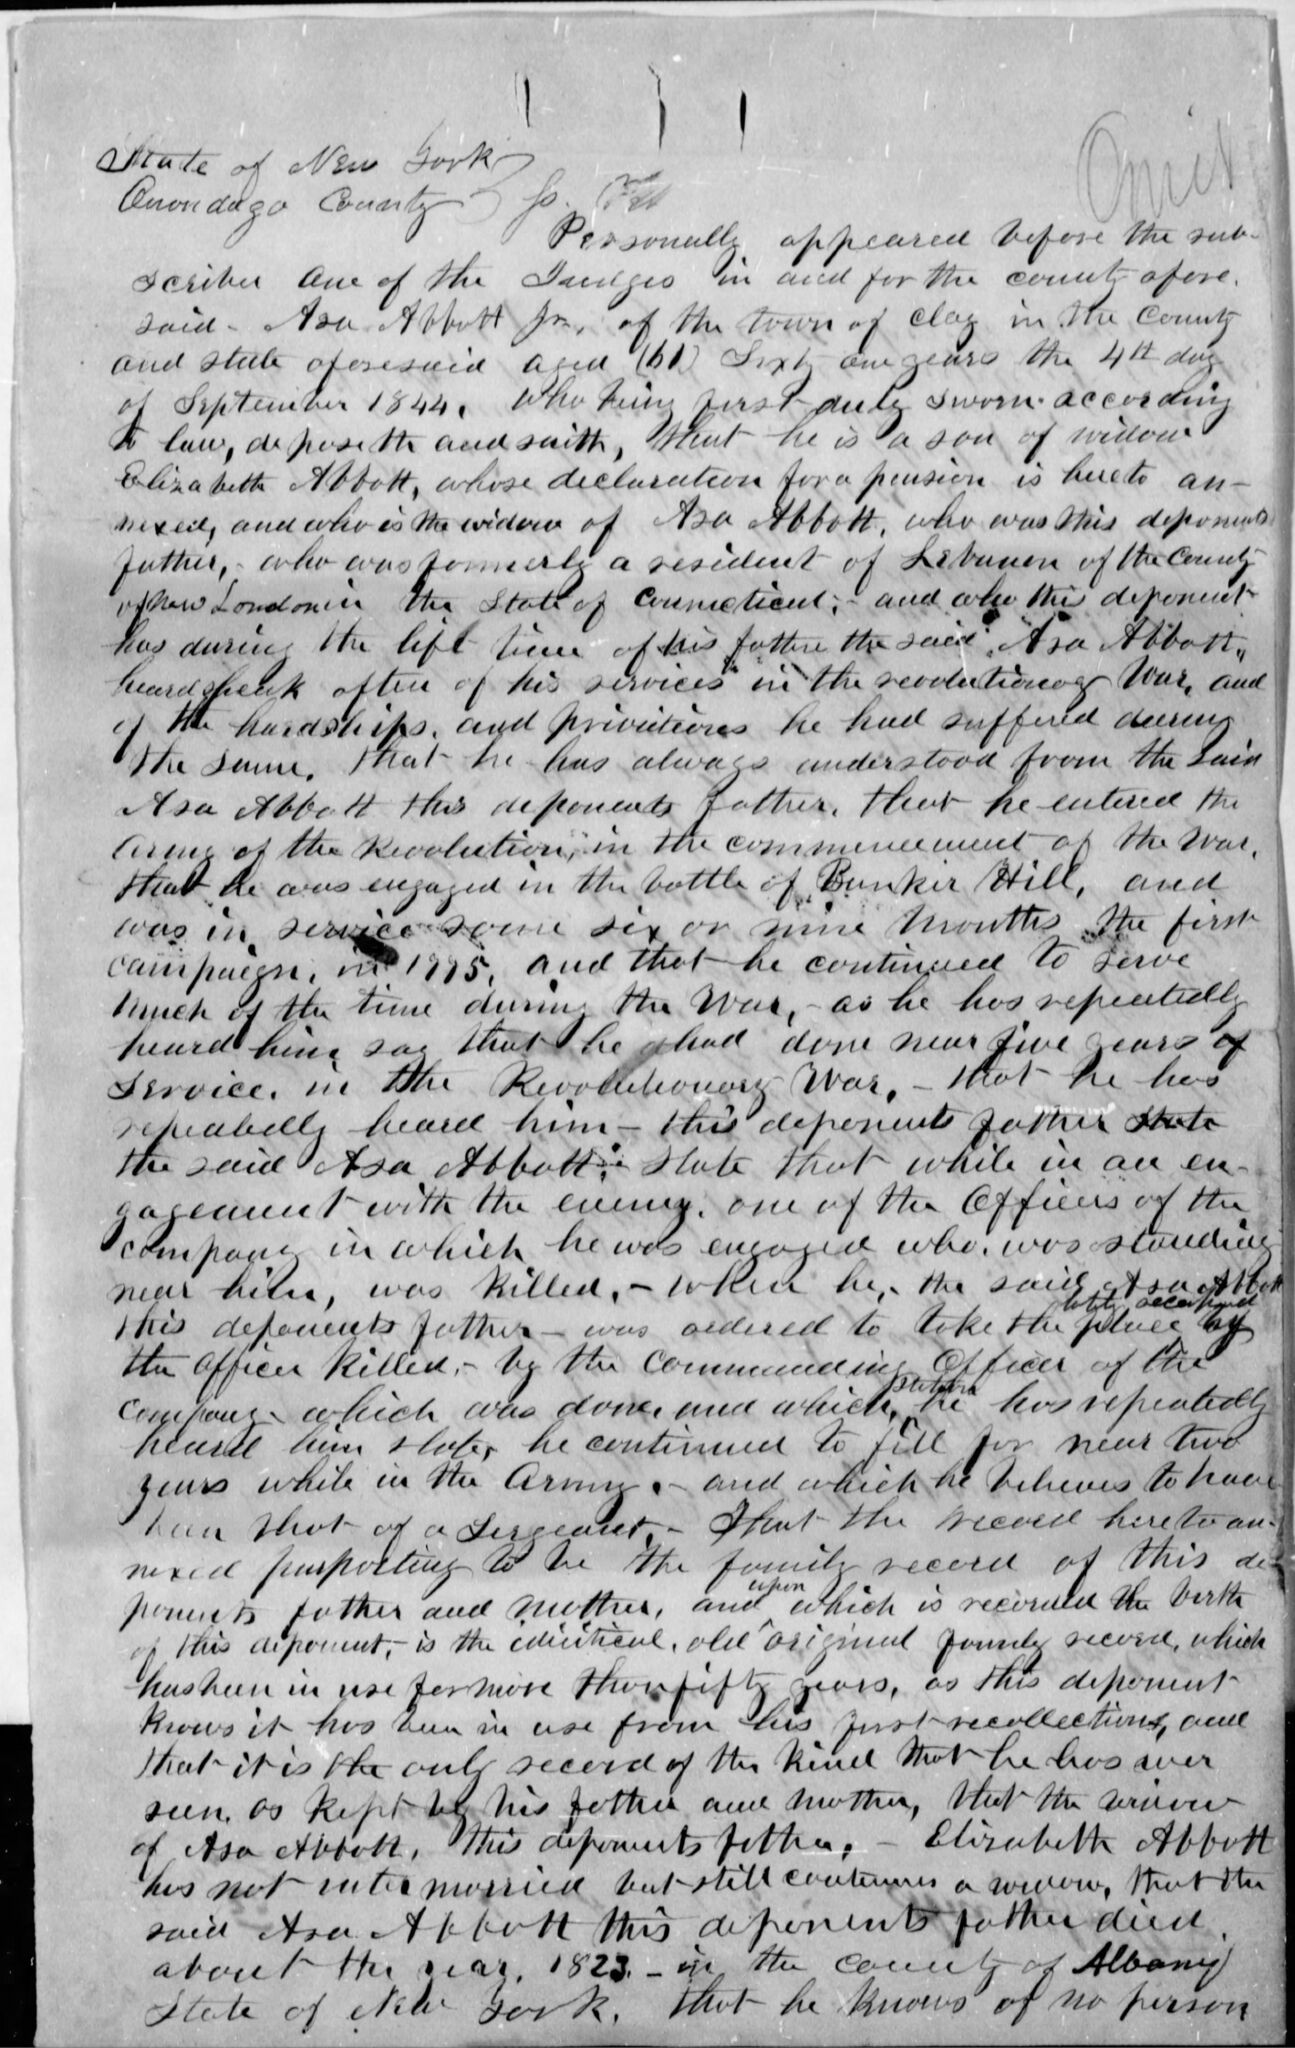 State of New York
Onondago County } ss.
Omit
Personally appeared before the sub-
scriber one of the Judges in and for the county afore.
said - Asa Abbott Jr. of the town of Clay in the County
and state aforesaid aged (61) Sixty one years the 4th day
of September 1844. Who being first duly sworn according
to law, deposeth and saith, that he is a son of widow
Elizabeth Abbott, whose declaration for a pension is hereto an-
nexed, and who is the widow of Asa Abbott, who was this deponents
father, - who was formerly a resident of Lebanon of the County
of New London in the State of Connecticut; - and who this deponent
has during the life time of his father the said Asa Abbott,
heard speak often of his services in the revolutionary War, and
of the hardships, and privations he had suffered during
the same. that he has always understood from the said
Asa Abbott this deponents father, that he entered the
Army of the Revolution, in the commencement of the war,
that he was engaged in the battle of Bunker Hill, and
was in service some six or nine months the first
campaign, in 1775, and that he continued to serve
much of the time during the War, - as he has repeatedly
heard him say that he had done near five years of
service, in the Revolutionary War, - that he has
repeatedly heard him - this deponents father state
the said Asa Abbott; state that while in an en-
gagement with the enemy, one of the Officers of the
company in which he was engaged who was standing
near him, was killed, - when he, the said Asa Abbott
this deponents father - was ordered to take the place by
lately occupied
the Officer killed, - by the Commanding Officer of the
company - which was done, and which station he has repeatedly
heard him state, he continued to fill for near two
years while in the Army, - and which he believes to have
been that of a Sergeant, - That the record hereto an-
nexed purporting to be the family record of this de-
ponents father and mother, and upon which is recorded the birth
of this deponent, - is the identical, old original family record, which
has been in use for more than fifty years, as this deponent
knows it has been in use from his first recollections, and
that it is the only record of the kind that he has ever
seen, as kept by his father and mother, that the widow
of Asa Abbott, this deponents father, - Elizabeth Abbott
has not intermarried but still continues a widow, that the
said Asa Abbott this deponents father died
about the year, 1823 - in the county of Albany
State of New York. that he knows of no person